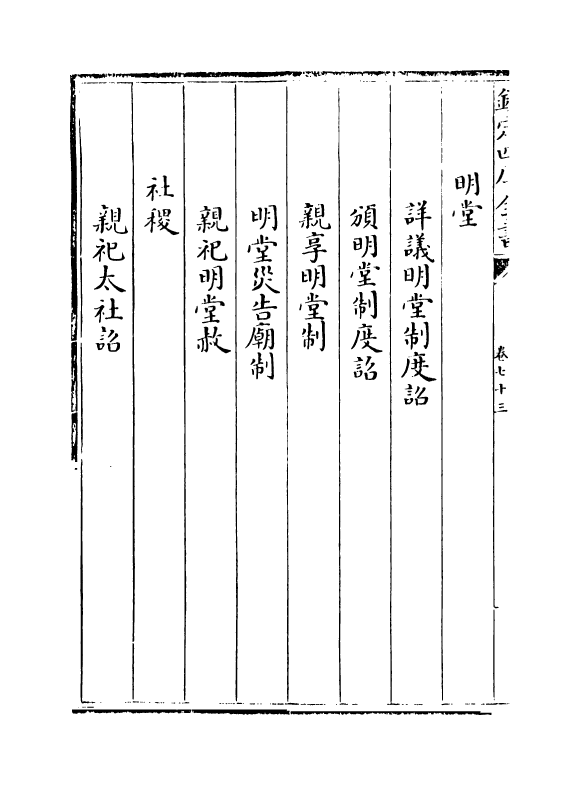 欽定四庫全書
卷七十三
明堂
詳議明堂制度詔
頒明堂制度詔
親享明堂制
明堂災告廟制
親祀明堂赦
社稷
親祀太社詔